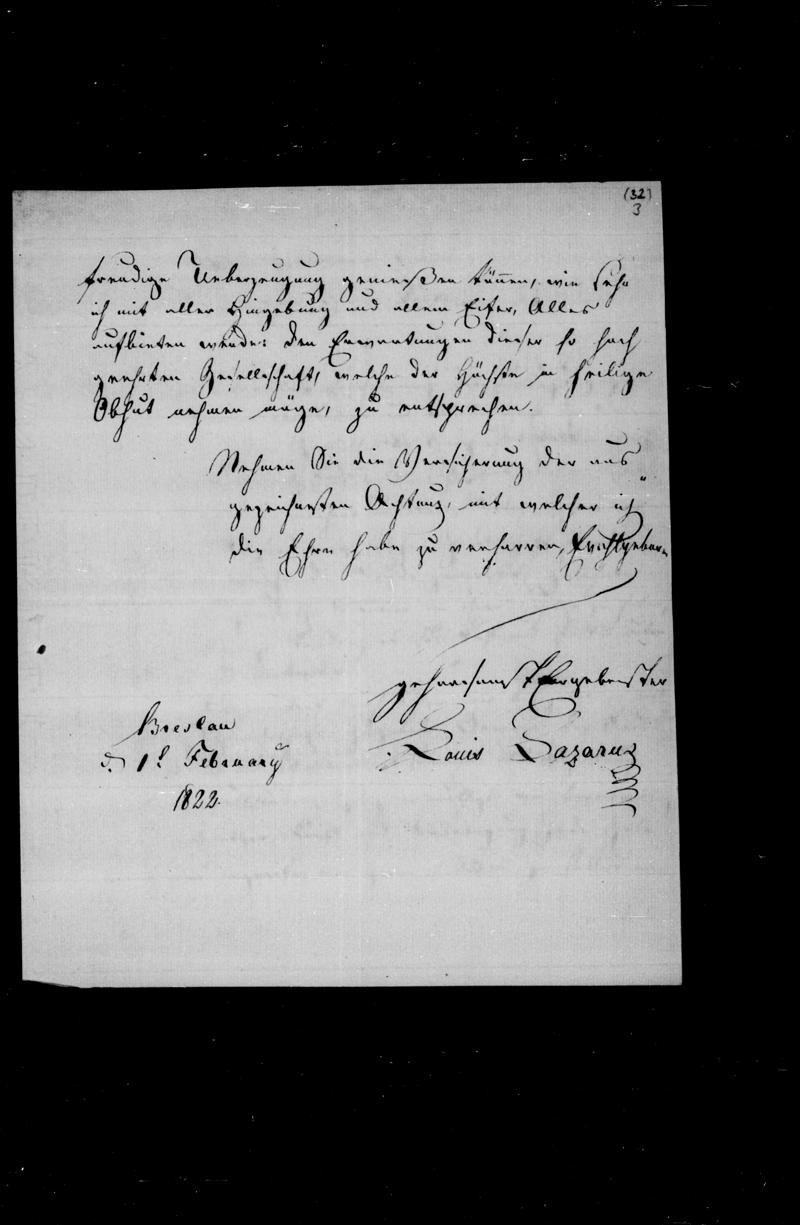 (32)
3
freudige Ueberzeugung genießen können, wie sehr
ich mit aller Hingebung und allem Eifer, Alles
aufbieten werde: den Erwartungen dieser so hoch
geehrten Gesellschaft, welche der Höchste in heilige
Obhut nehmen möge, zu entsprechen.
Nehmen Sie die Versicherung der aus"
gezeichnesten Achtung, mit welcher ich
die Ehre habe zu verharren,
gehorsamst Ergebenster
Louis Lazarus
Breslau
d. 1t February
1822.